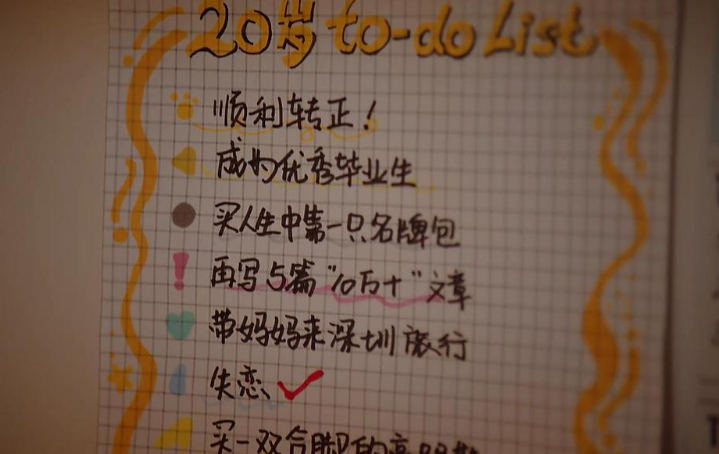 20岁 to-do List
顺利转正！
成为优秀毕业生
买人生中第一只名牌包
再写5篇“10万+”文章
带妈妈来深圳旅行
失恋
买一双合脚的高跟鞋